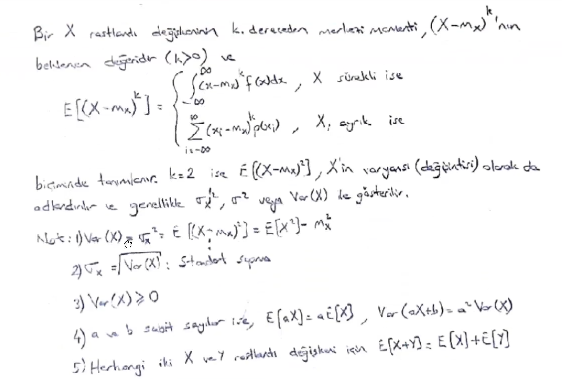 Bir X rastlantı değişkeninin k. dereceden merkezi momenti, (X-m_x)^k'nın
beklenen değeridir (k>0) ve
E[(X-m_x)^k] = { ∫_{-∞}^{∞} (x-m_x)^k f(x)dx , X sürekli ise
∑_{i=-∞}^{∞} (x_i-m_x)^k p(x_i) , X, ayrık ise
biçiminde tanımlanır. k=2 ise E[(X-m_x)^2], X'in varyansı (değişintisi) olarak da
adlandırılır ve genellikle σ_x^2, σ^2 veya Var(X) ile gösterilir.
Not: 1) Var(X) = σ_x^2 = E[(X-m_x)^2] = E[X^2] - m_x^2
2) σ_x = √Var(X) : Standart sapma
3) Var(X) ≥ 0
4) a ve b sabit sayılar ise, E[aX] = aE[X] , Var(aX+b) = a^2 Var(X)
5) Herhangi iki X ve Y rastlantı değişkeni için E[X+Y] = E[X]+E[Y]